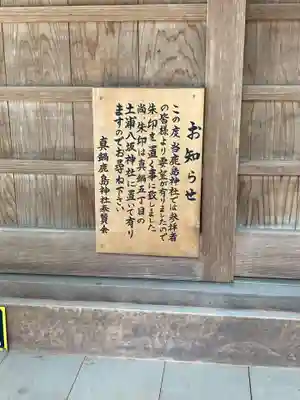 お知らせ
この度、当鹿島神社では参拝者
の皆様より要望が有りましたので
朱印を置く事に致しました
尚、朱印は真鍋五丁目の
土浦八坂神社に置いて有り
ますのでお尋ね下さい
真鍋鹿島神社奉賛会